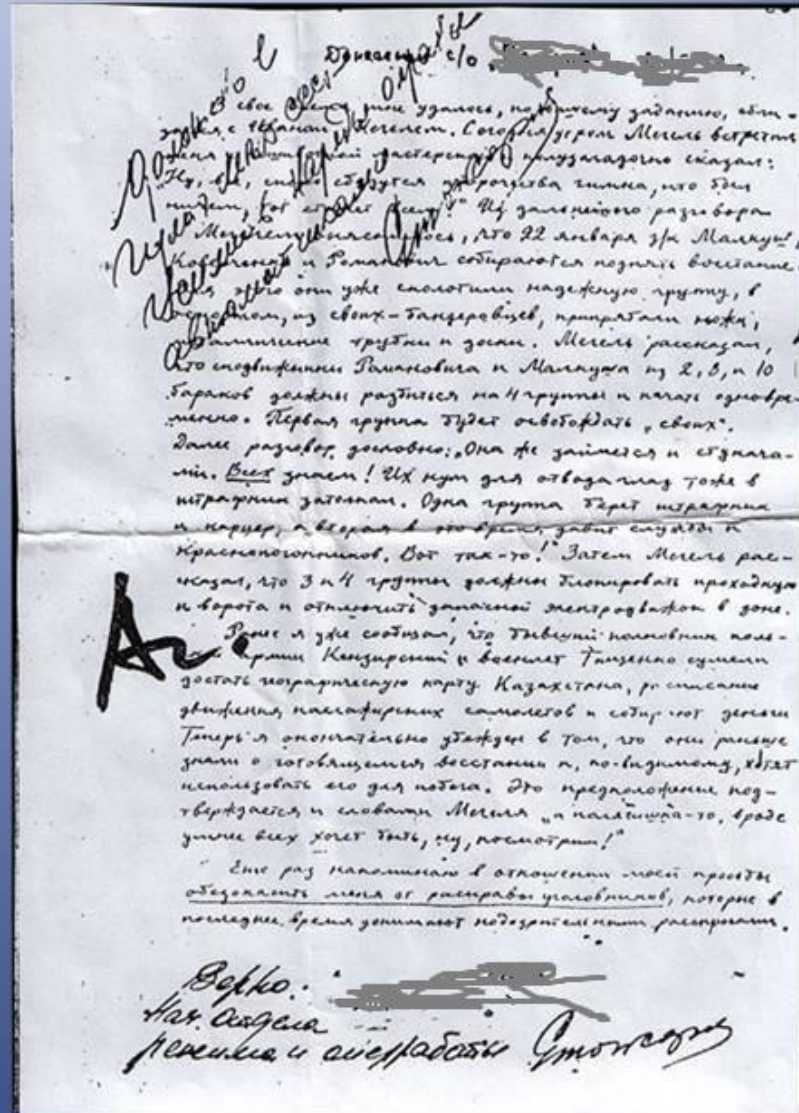 Донесение с/о
В свое время мне удалось, по Вашему заданию, сбли-
зиться с Мегелем. Сегодня утром Мегель встретил
меня мастерской и полузагадочно сказал:
"Ну, все, скоро сбудутся пророчества гимна, кто был
ничем, тот станет всем!" Из дальнейшего разговора
с Мегелем выяснилось, что 22 января з/к Малкуш,
и Романович собираются поднять восстание.
Для этого они уже сколотили надежную группу, в
основном, из своих-бандеровцев, припрятали ножи,
металлические трубки и доски. Мегель рассказал,
что сподвижники Романовича и Малкуша из 2, 8, и 10
бараков должны разбиться на 4 группы и начать одновре-
менно. Первая группа будет освобождать "своих".
Далее разговор дословно: "Она же займется и стукача-
ми. Всех знаем! Их кум для отвода глаз тоже в
штрафник затолкал. Одна группа берет штрафник
и карцер, а вторая в это время давит службу и
краснопогонников. Вот так-то!" Затем Мегель рас-
сказал, что 3 и 4 группы должны блокировать проходную
и ворота и отключить запасной электродвижок в зоне.
Ранее я уже сообщал, что бывший полковник поль-
ской армии Кензирский и военлет Тищенко сумели
достать географическую карту Казахстана, расписание
движения пассажирских самолетов и собирают деньги
Теперь я окончательно убежден в том, что они раньше
знали о готовящемся восстании и, по-видимому, хотят
использовать его для побега. Это предположение под-
тверждается и словами Мегеля "а полячишка-то, вроде
умнее всех хочет быть, ну, посмотрим!"
Еще раз напоминаю в отношении моей просьбы
обезопасить меня от расправы уголовников, которые в
последнее время донимают подозрительными расспросами.
Верно:
Нач. отдела
режима и оперработы